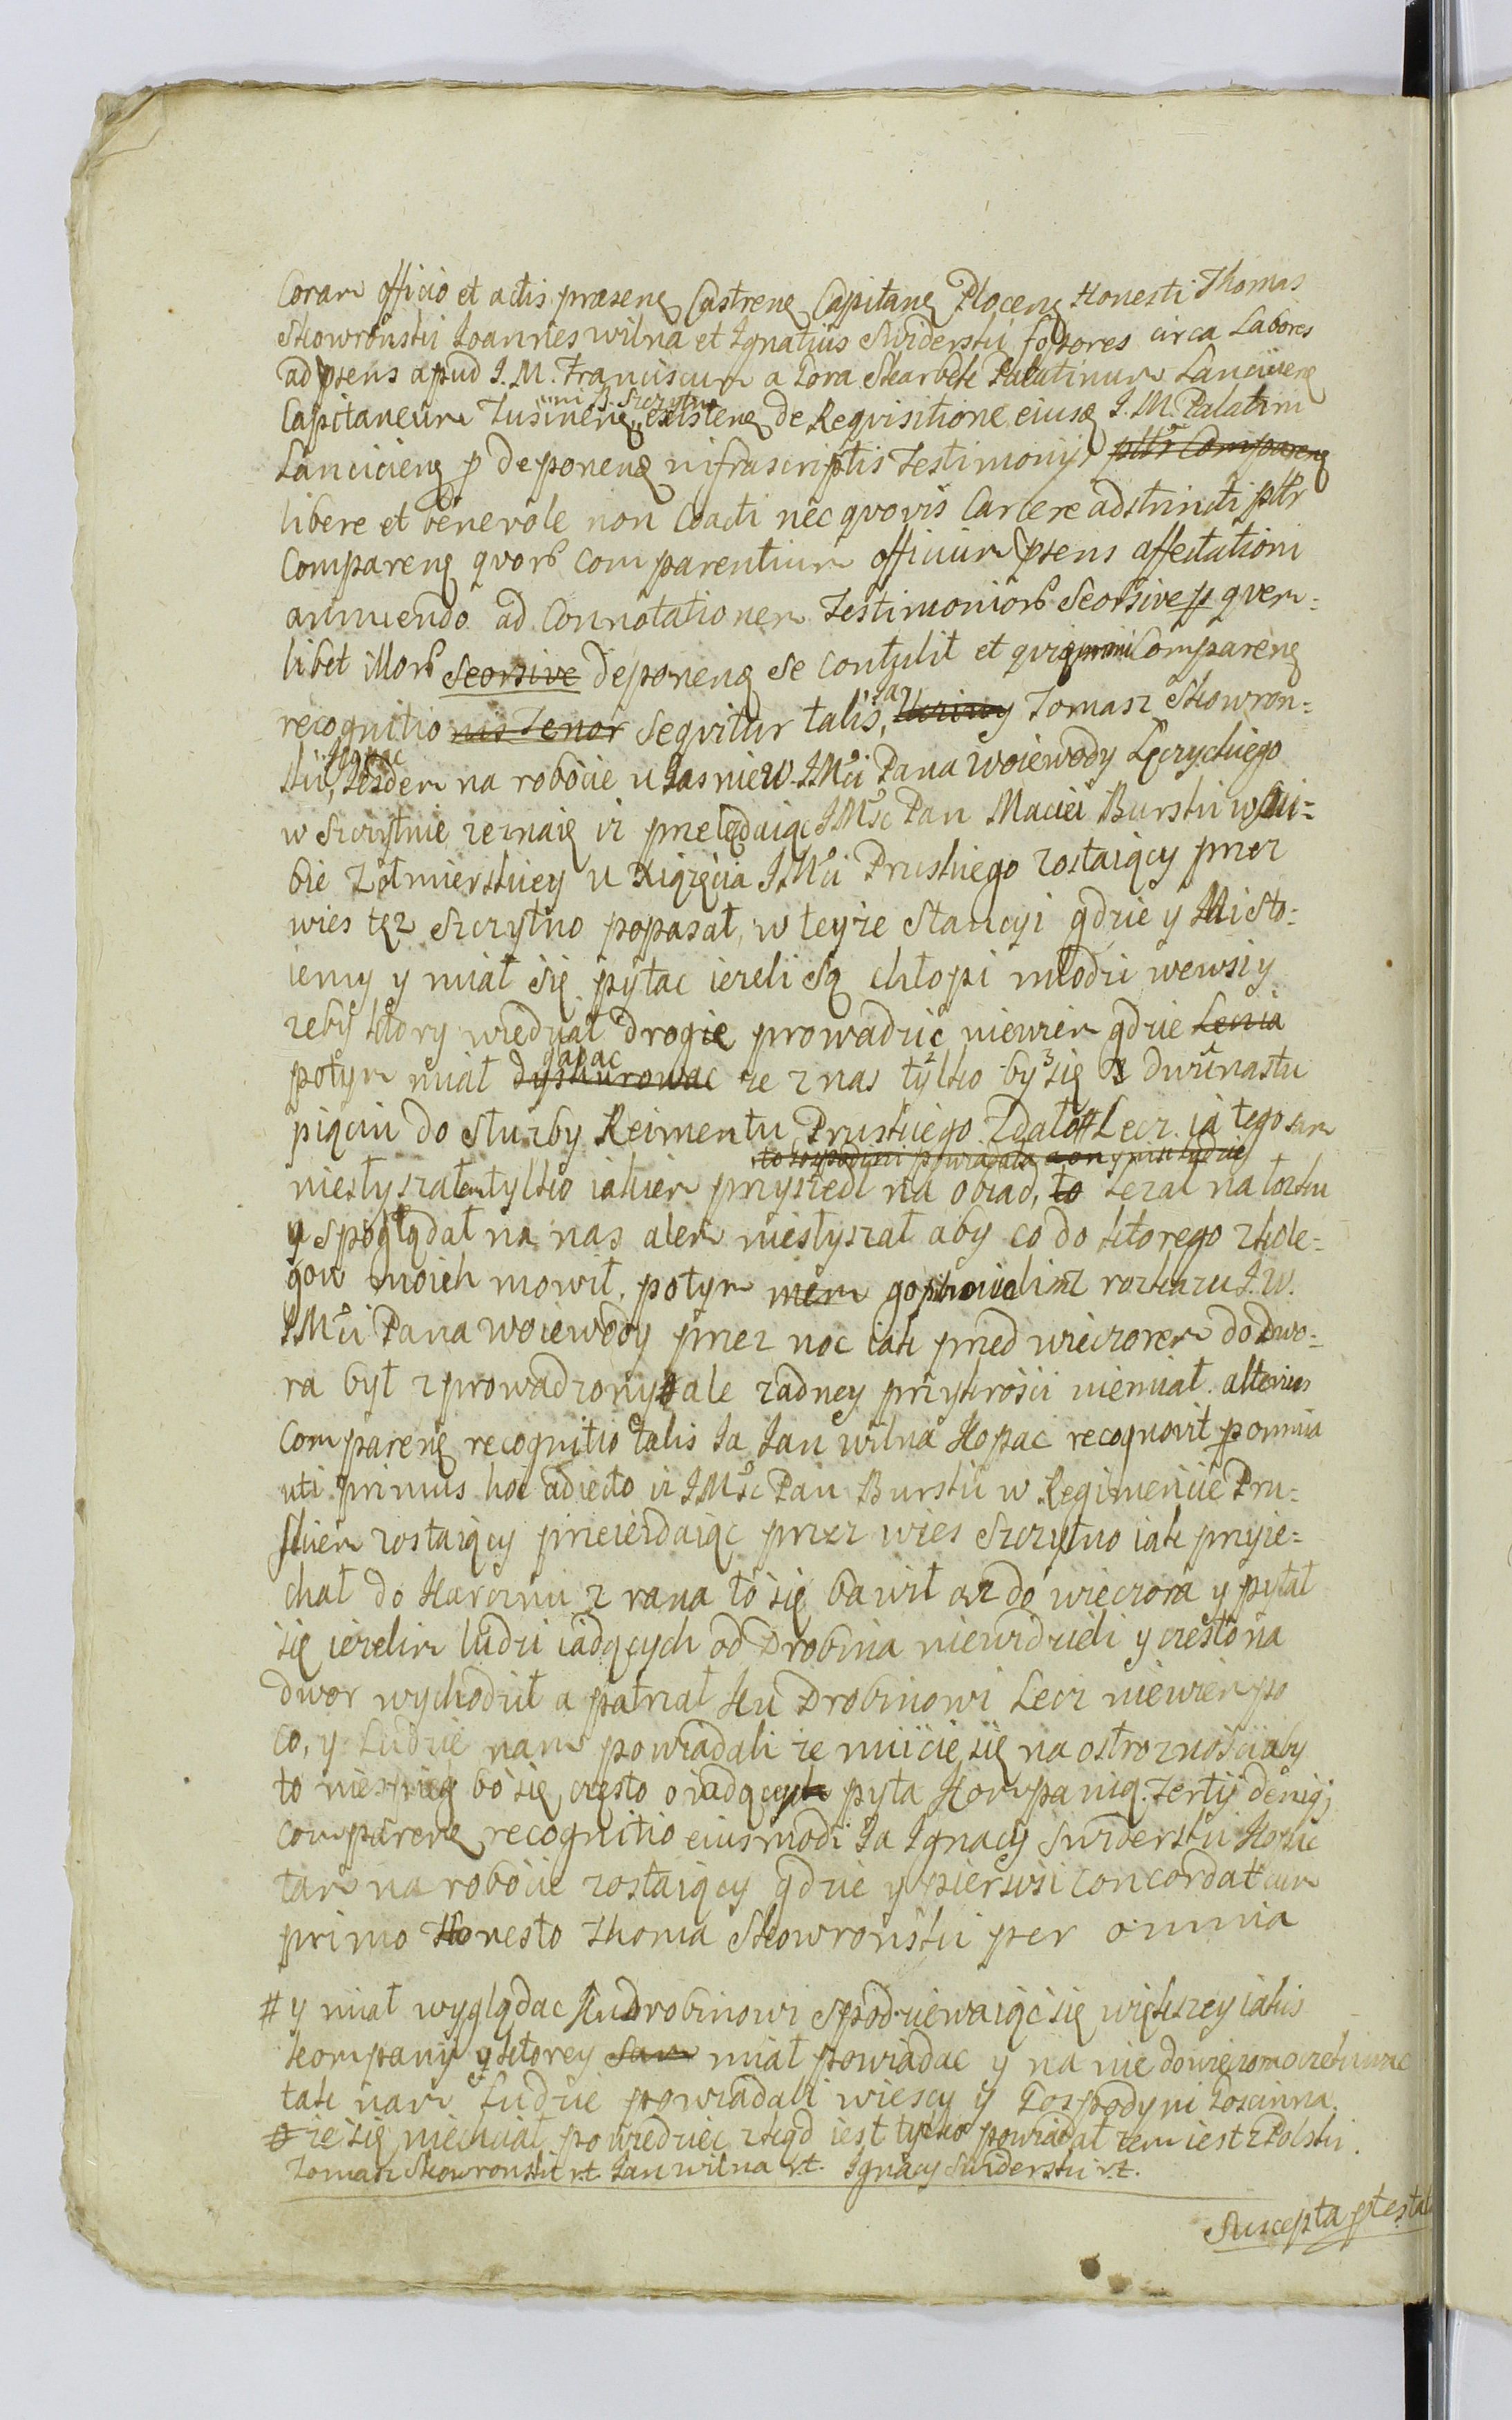 Coram officio et actis praesenꝫ Castrenꝫ Capitanꝫ Plocenꝫ Honesti Thomas
Skowronski Joannes Wilna et Ignatius Swiderski fossores circa Labores
ad psens apud J. M. Franciscum a Gora Skarbek Palatinum Lancicienꝫ
Capitaneum in B. Szczytno existenꝫ de Reqvisitione eiusꝫ J. M. Palatini
Lancicienꝫ p deponenꝫ infrascriptis Testimonijs pltr Comparenꝫ
libere et benevole non Coacti nec qvovis Carcere adstricti pltr
Comparenꝫ qvorꝫ comparentium officium psens affectationi
annuendo ad Connotationem Testimoniorꝫ Seorsive p qvem=
libet illorꝫ Seorsive deponenꝫ se contulit et qvi primi Comparenꝫ
recognitio nis Tenor seqvitur talis, Ja Tomasz Skowron=
ski, Kopac Jestem na robocie u Jasnie W. JMci Pana Woiewody Łęczyckiego
w Szczytnie zeznaię iz przeiezdaiąc JMsc Pan Maciei Burski w słuz=
bie Zołnierskiey u Xiązęcia JMci Pruskiego zostaiący przez
wies tęz Szczytno popasał, w teyze Stancyi gdzie y My sto=
iemy y miał się pytac iezeli są chłopi młodzi wewsi y
zeby ktory wiedział drogie prowadzic niewiem gdzie Lecia
potym miał dyskurowac gadac ze z nas tylko by się z dwunastu
pięciu do słuzby Reimentu Pruskiego Zdało # Lecz ia tego sam
to Gospodini powiadała a on y nisi ludzie
niesłyszałem tylko iakiem przyszedł na obiad, to lezał na łozku
y spoglądał na nas alem niesłyszał aby co do ktorego zkole=
gow moich mowił, potym go z rozkazu J. W.
JMci Pana Woiewody przez noc iak przed wieczorem do Dwo=
ra był zprowadzony ale zadney przykrosci niemiał. alterius
Comparenꝫ recognitio talis Ja Jan Wilna Kopac recognovit p omnia
uti primus hoc adiecto iz JMsc Pan Burski w Regimencie Pru=
skiem zostaiący przeiezdaiąc przez wies Szczytno iak przyie=
chał do Karczmi z rana to się bawił az do wieczora y pytał
się iezelim ludzi iadących od Drobina niewidzieli y często na
dwor wychodził a patrzał ku Drobinowi Lecz niewiem po
co, y Ludzie nam powiadali ze miicie się na ostroznosci aby
to nie szpieg bo się często o iadących pyta Kompanią. Tertij deniqꝫ
comparenꝫ recognitio eiusmodi Ja Ignacy Swiderski Kopac
tam na robocie zostaiący gdzie y pierwsi concordat cum
primo Honesto Thoma Skowronski per omnia
# y miał wyglądac ku Drobinowi spodziewaiąc się większey iakis
kompanij o ktorey sam miał powiadac y na nie do wieczora oczekiwac
tak nam Ludzie powiadali wiescy y Gospodyni Goscinna.
ze się niechciał powiedziec zkąd iest tylko powiadał zem iest z Polski.
Tomasz Skowronski r.t. Jan Wilna r.t. Ignacy Swiderski r.t.
Suscepta ptestat